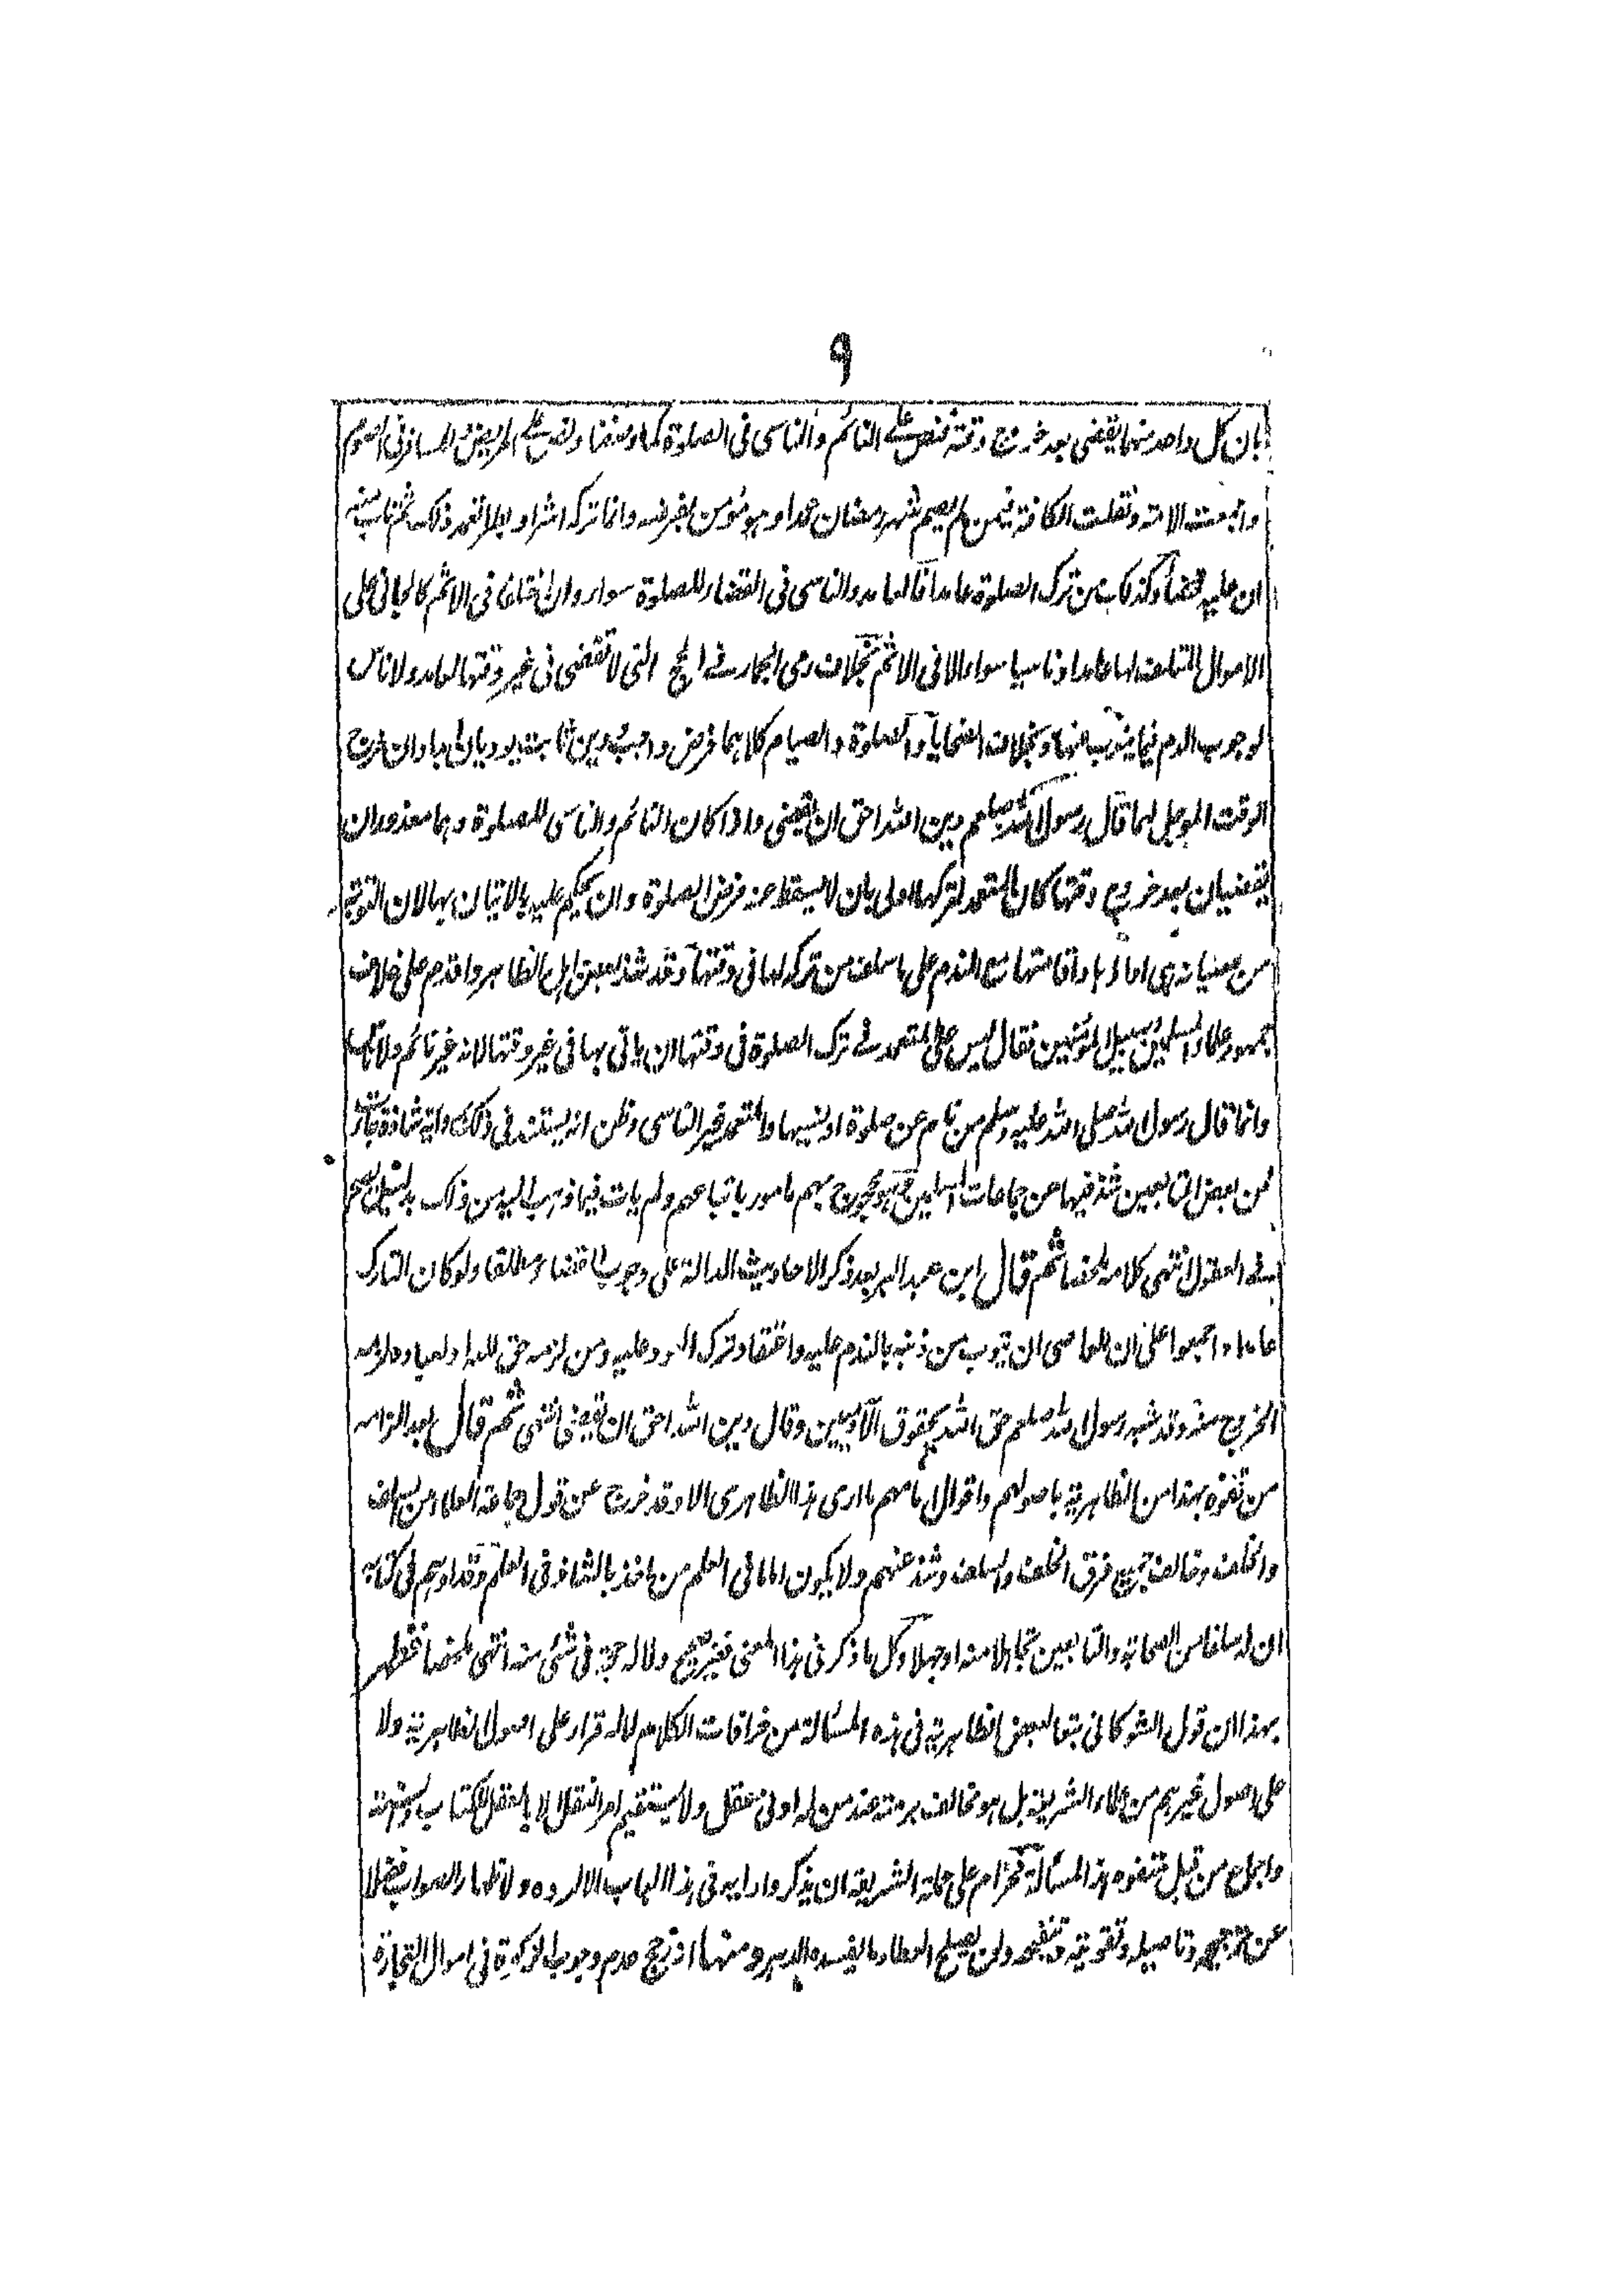 ٩
بان كل واحد منهما يقضى بعد خروج وقته فنص على النائم والناسى فى الصلوة كما وصفنا ونص على المريض والمسافر فى الصوم
واجمعت الامة ونقلت الكافة فيمن لم يصم شهر رمضان عمدا وهو مؤمن بفرضه وانما تركه اشرا وبطرا تعمد ذلك ثم تاب منه
ان عليه قضاءه وكذلك من ترك الصلوة عامدا فالعامد والناسى فى القضاء للصلوة سواء وان اختلفا فى الاثم كالجانى على
الاموال المتلف لها عامدا وناسيا سواء الا فى الاثم بخلاف رمى الجمار فے الحج التى لا تقضى فى غير وقتها لعامد ولا ناس
لوجوب الدم فيما ينوب عنها وبخلاف الضحايا والصلوة والصيام كلاهما فرض واجب ودين ثابت يوديان ابدا وان خرج
الوقت الموجل لهما قال رسول الله صلعم دين الله احق ان يقضى واذا كان النائم والناسى للصلوة وهما معذوران
يقضيان بعد خروج وقتها كان المتعمد لتركها اولى بان لا يسقط عنه فرض الصلوة وان يحكم عليه بالاتيان بها لان التوبة
من عصيانه هى اداؤها واقامتها مع الندم على ما سلف من تركه لها فى وقتها وقد شذ بعض اهل الظاهر واقدم على خلاف
جمهور علماء المسلمين وسبيل المؤمنين فقال ليس على المتعمد فے ترك الصلوة فى وقتها ان ياتى بها فى غير وقتها لانه غير نائم ولا ناس
وانما قال رسول الله صلى الله عليه وسلم من نام عن صلوة او نسيها والمتعمد غير الناسى وظن انه يستند فى ذلك برواية شاذة جاءت
عن بعض التابعين شذ فيها عن جماعات المسلمين وهو محجوج بهم مامور باتباعهم ولم يات فيما ذهب اليه من ذلك بدليل يصح
فے العقول انتهى كلامه ملخصا ثم قال ابن عبد البر بعد ذكر الاحاديث الدالة على وجوب القضاء مطلقا ولو كان التارك
عامدا واجمعوا على ان للعاصى ان يتوب من ذنبه بالندم عليه واعتقاد ترك العود عليه ومن لزمه حق لله او لعباده لزمه
الخروج منه وقد شبه رسول الله صلعم حق الله بحقوق الآدميين وقال دين الله احق ان يقضى انتهى ثم قال بعد الزامه
من تفوه بهذا من الظاهرية باصولهم واقوال امامهم ما ارى هذا الظاهرى الا وقد خرج عن قول جماعة العلماء من السلف
والخلف وخالف جميع فرق الخلف والسلف وشذ عنهم ولا يكون اماما فى العلم من ياخذ بالشاذ فى العلم وقد اوهم فى كتابه
ان له سلفا من الصحابة والتابعين تجاهلا منه او جهلا وكل ما ذكر فى هذا المعنى فغير صحيح ولا له حجة فى شئى منه انتهى ملخصا فظهر
بهذا ان قول الشوكانى تبعا لبعض الظاهرية فى هذه المسئالة من خرافات الكلام لا له قرار على اصول الظاهرية ولا
على اصول غيرهم من علماء الشريعة بل هو مخالف برمته عند من له ادنى عقل ولا يستقيم امر النقل الا بالعقل للكتاب والسنة
واجماع من قبل متفوه هذه المسئالة فحرام على حملة الشريعة ان يذكروا رايه فى هذا الباب الا لرده ولاظهار الصواب فضلا
عن ترجيحه وتاصيله وتقويته وتنقيحه ولن يصلح العطار ما يفسده الدهر ومنها انه رجح عدم وجوب الزكوة فى اموال التجارة